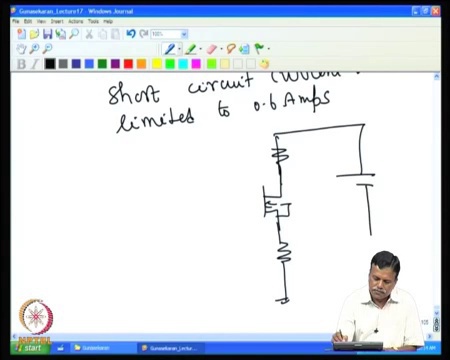 Gunasekaran_Lecture17 - Windows Journal
File Edit View Insert Actions Tools Help
100%
B I
short circuit
limited to 0.6 Amps
start
Gunasekaran
Gunasekaran_Lectu...